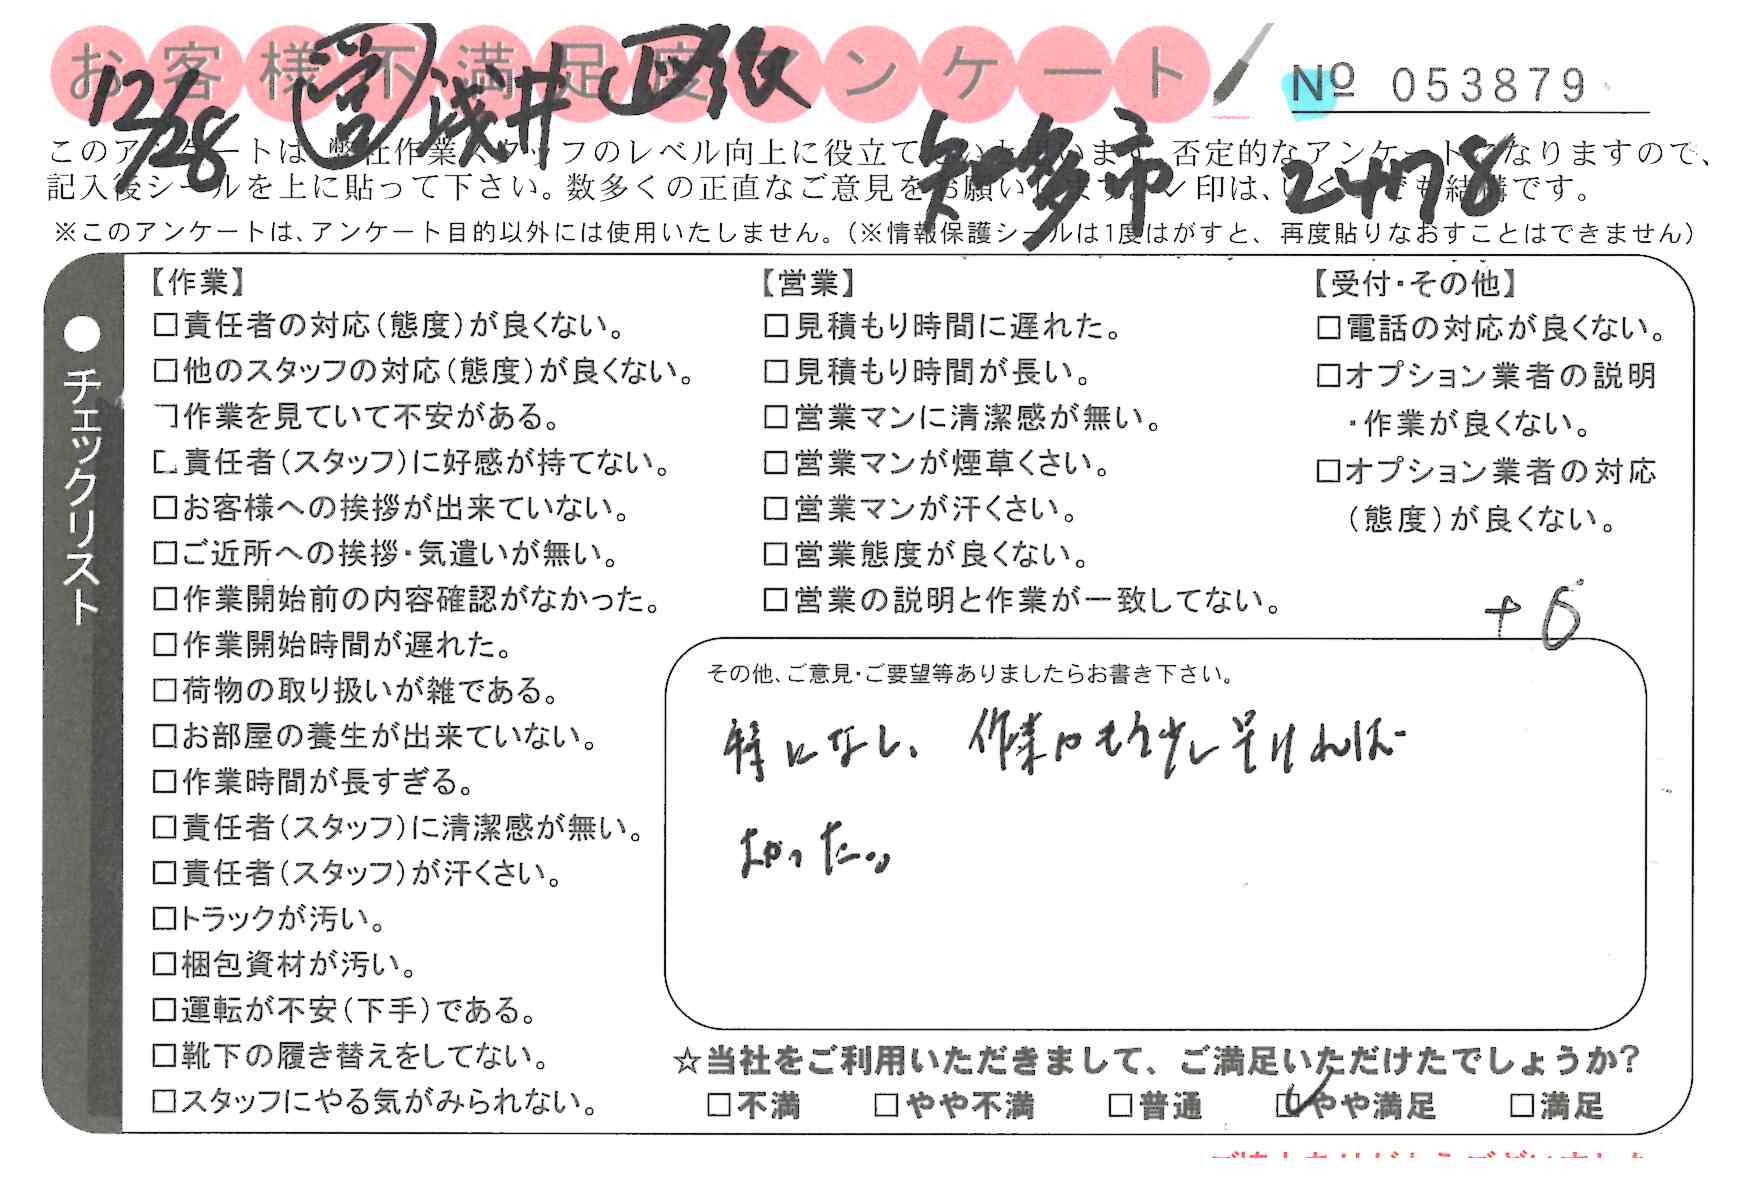 お客様不満足度アンケート
№ 053879
12/28 営 浅井 図紙 知多市 2478
このアンケートは、弊社作業スタッフのレベル向上に役立て 否定的なアンケートになりますので、
記入後シールを上に貼って下さい。数多くの正直なご意見をお願い 印は、いくつでも結構です。
※このアンケートは、アンケート目的以外には使用いたしません。(※情報保護シールは1度はがすと、再度貼りなおすことはできません)
●チェックリスト
【作業】
□責任者の対応(態度)が良くない。
□他のスタッフの対応(態度)が良くない。
□作業を見ていて不安がある。
□責任者(スタッフ)に好感が持てない。
□お客様への挨拶が出来ていない。
□ご近所への挨拶・気遣いが無い。
□作業開始前の内容確認がなかった。
□作業開始時間が遅れた。
□荷物の取り扱いが雑である。
□お部屋の養生が出来ていない。
□作業時間が長すぎる。
□責任者(スタッフ)に清潔感が無い。
□責任者(スタッフ)が汗くさい。
□トラックが汚い。
□梱包資材が汚い。
□運転が不安(下手)である。
□靴下の履き替えをしてない。
□スタッフにやる気がみられない。
【営業】
□見積もり時間に遅れた。
□見積もり時間が長い。
□営業マンに清潔感が無い。
□営業マンが煙草くさい。
□営業マンが汗くさい。
□営業態度が良くない。
□営業の説明と作業が一致してない。
【受付・その他】
□電話の対応が良くない。
□オプション業者の説明
・作業が良くない。
□オプション業者の対応
(態度)が良くない。
+6
その他、ご意見・ご要望等ありましたらお書き下さい。
特になし、作業がもう少し早ければ
よかった。
☆当社をご利用いただきまして、ご満足いただけたでしょうか?
□不満 □やや不満 □普通 ☑やや満足 □満足